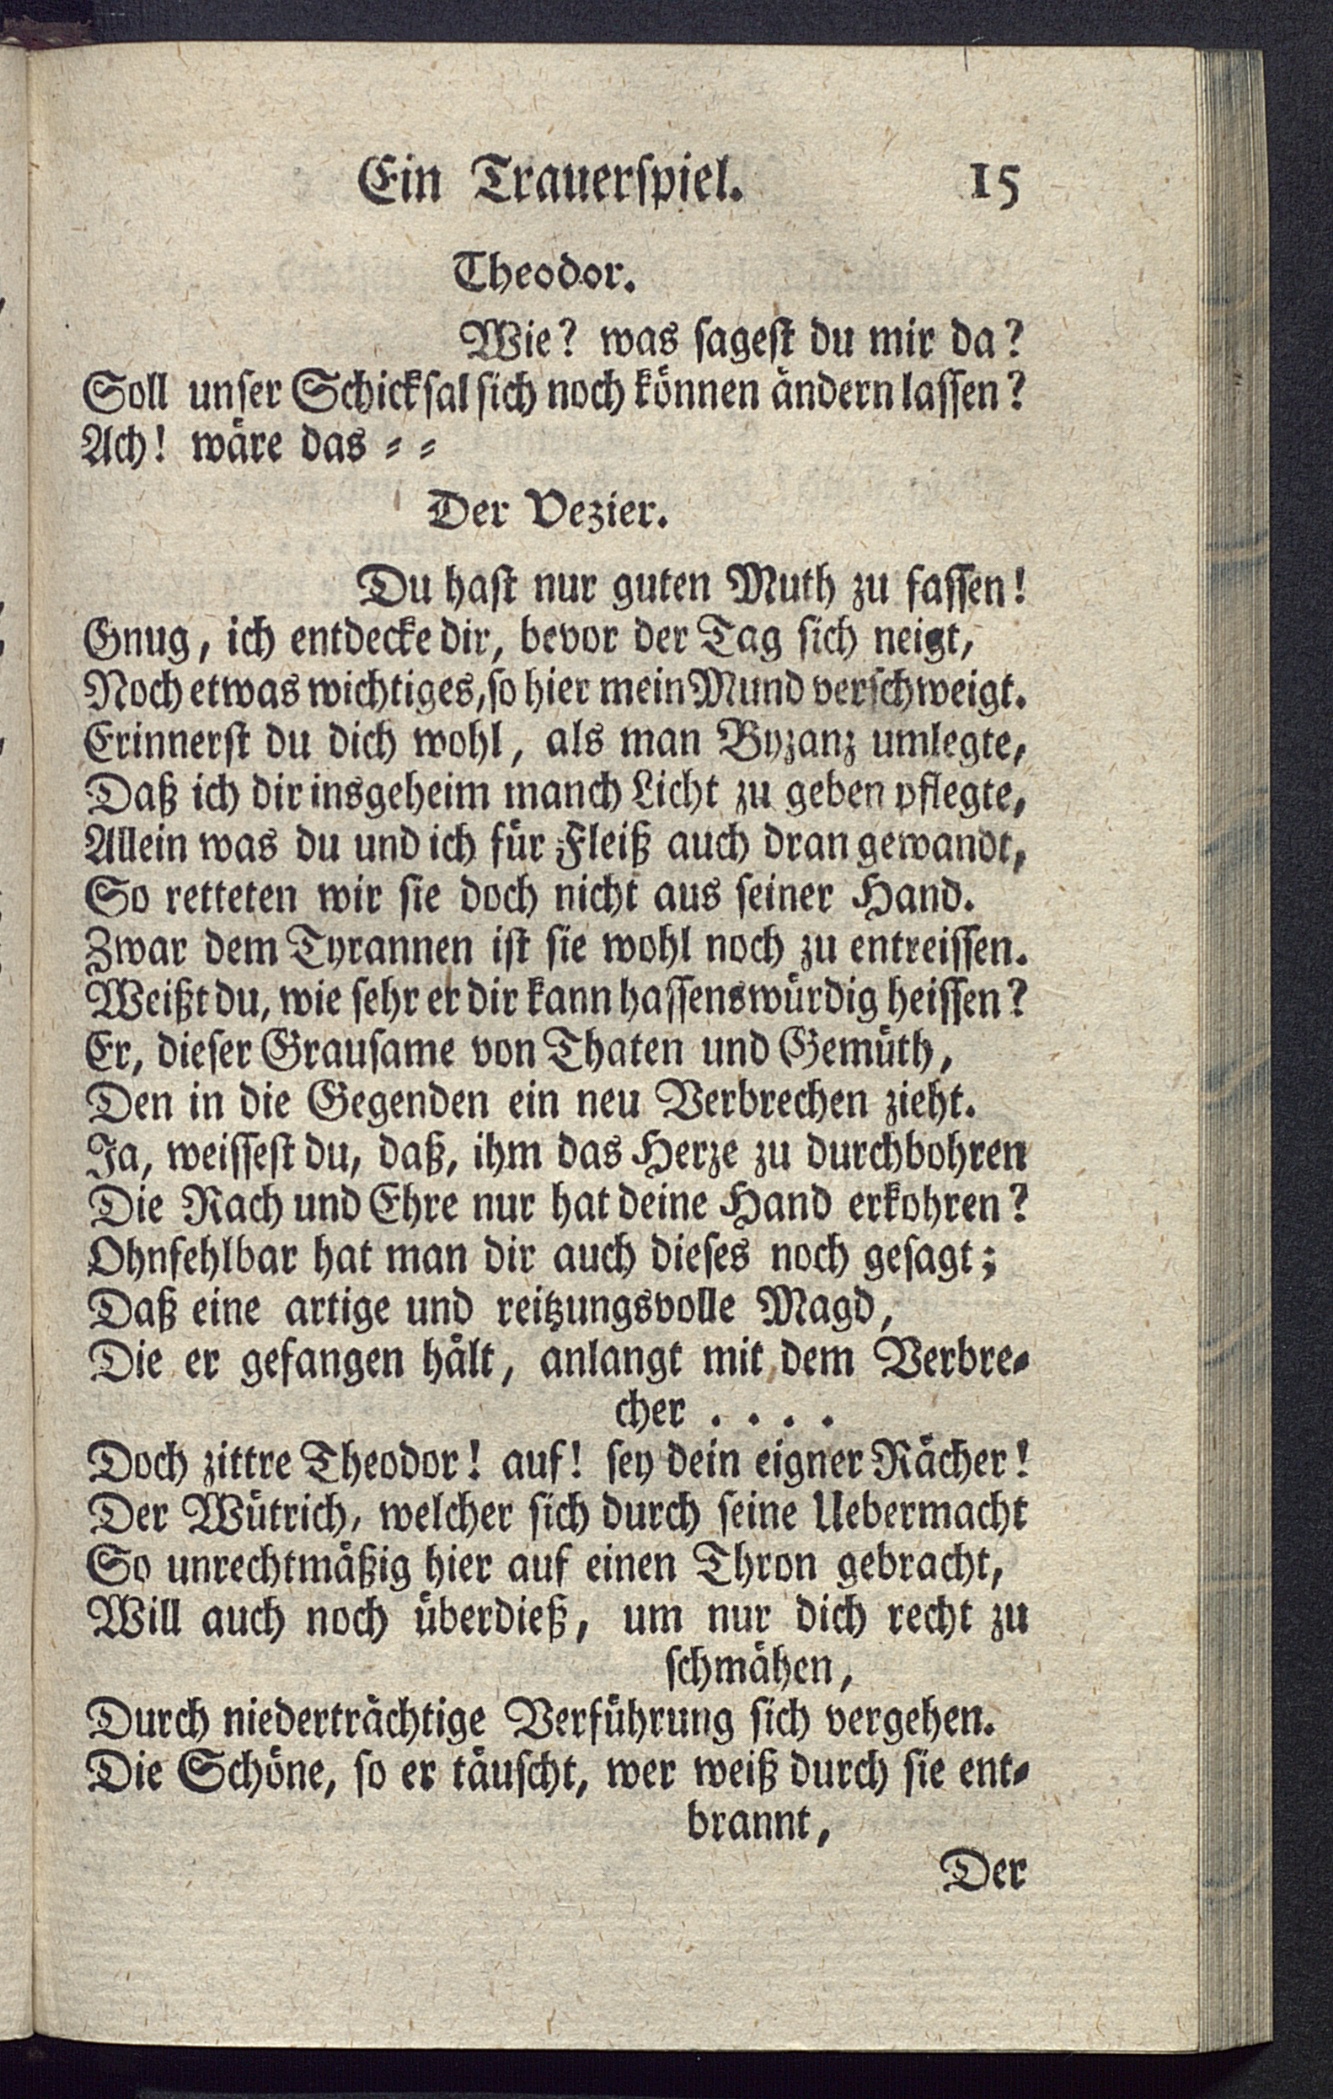 Ein Trauerspiel. 15
Theodor.
Wie? was sagest du mir da?
Soll unser Schicksal sich noch können ändern lassen?
Ach! wäre das = =
Der Vezier.
Du hast nur guten Muth zu fassen!
Gnug, ich entdecke dir, bevor der Tag sich neigt,
Noch etwas wichtiges, so hier mein Mund verschweigt.
Erinnerst du dich wohl, als man Byzanz umlegte,
Daß ich dir insgeheim manch Licht zu geben pflegte,
Allein was du und ich für Fleiß auch dran gewandt,
So retteten wir sie doch nicht aus seiner Hand.
Zwar dem Tyrannen ist sie wohl noch zu entreissen.
Weißt du, wie sehr er dir kann hassenswürdig heissen?
Er, dieser Grausame von Thaten und Gemüth,
Den in die Gegenden ein neu Verbrechen zieht.
Ja, weissest du, daß, ihm das Herze zu durchbohren
Die Rach und Ehre nur hat deine Hand erkohren?
Ohnfehlbar hat man dir auch dieses noch gesagt;
Daß eine artige und reitzungsvolle Magd,
Die er gefangen hält, anlangt mit dem Verbre=
cher . . . .
Doch zittre Theodor! auf! sey dein eigner Rächer!
Der Wütrich, welcher sich durch seine Uebermacht
So unrechtmäßig hier auf einen Thron gebracht,
Will auch noch überdieß, um nur dich recht zu
schmähen,
Durch niederträchtige Verführung sich vergehen.
Die Schöne, so er täuscht, wer weiß durch sie ent=
brannt,
Der